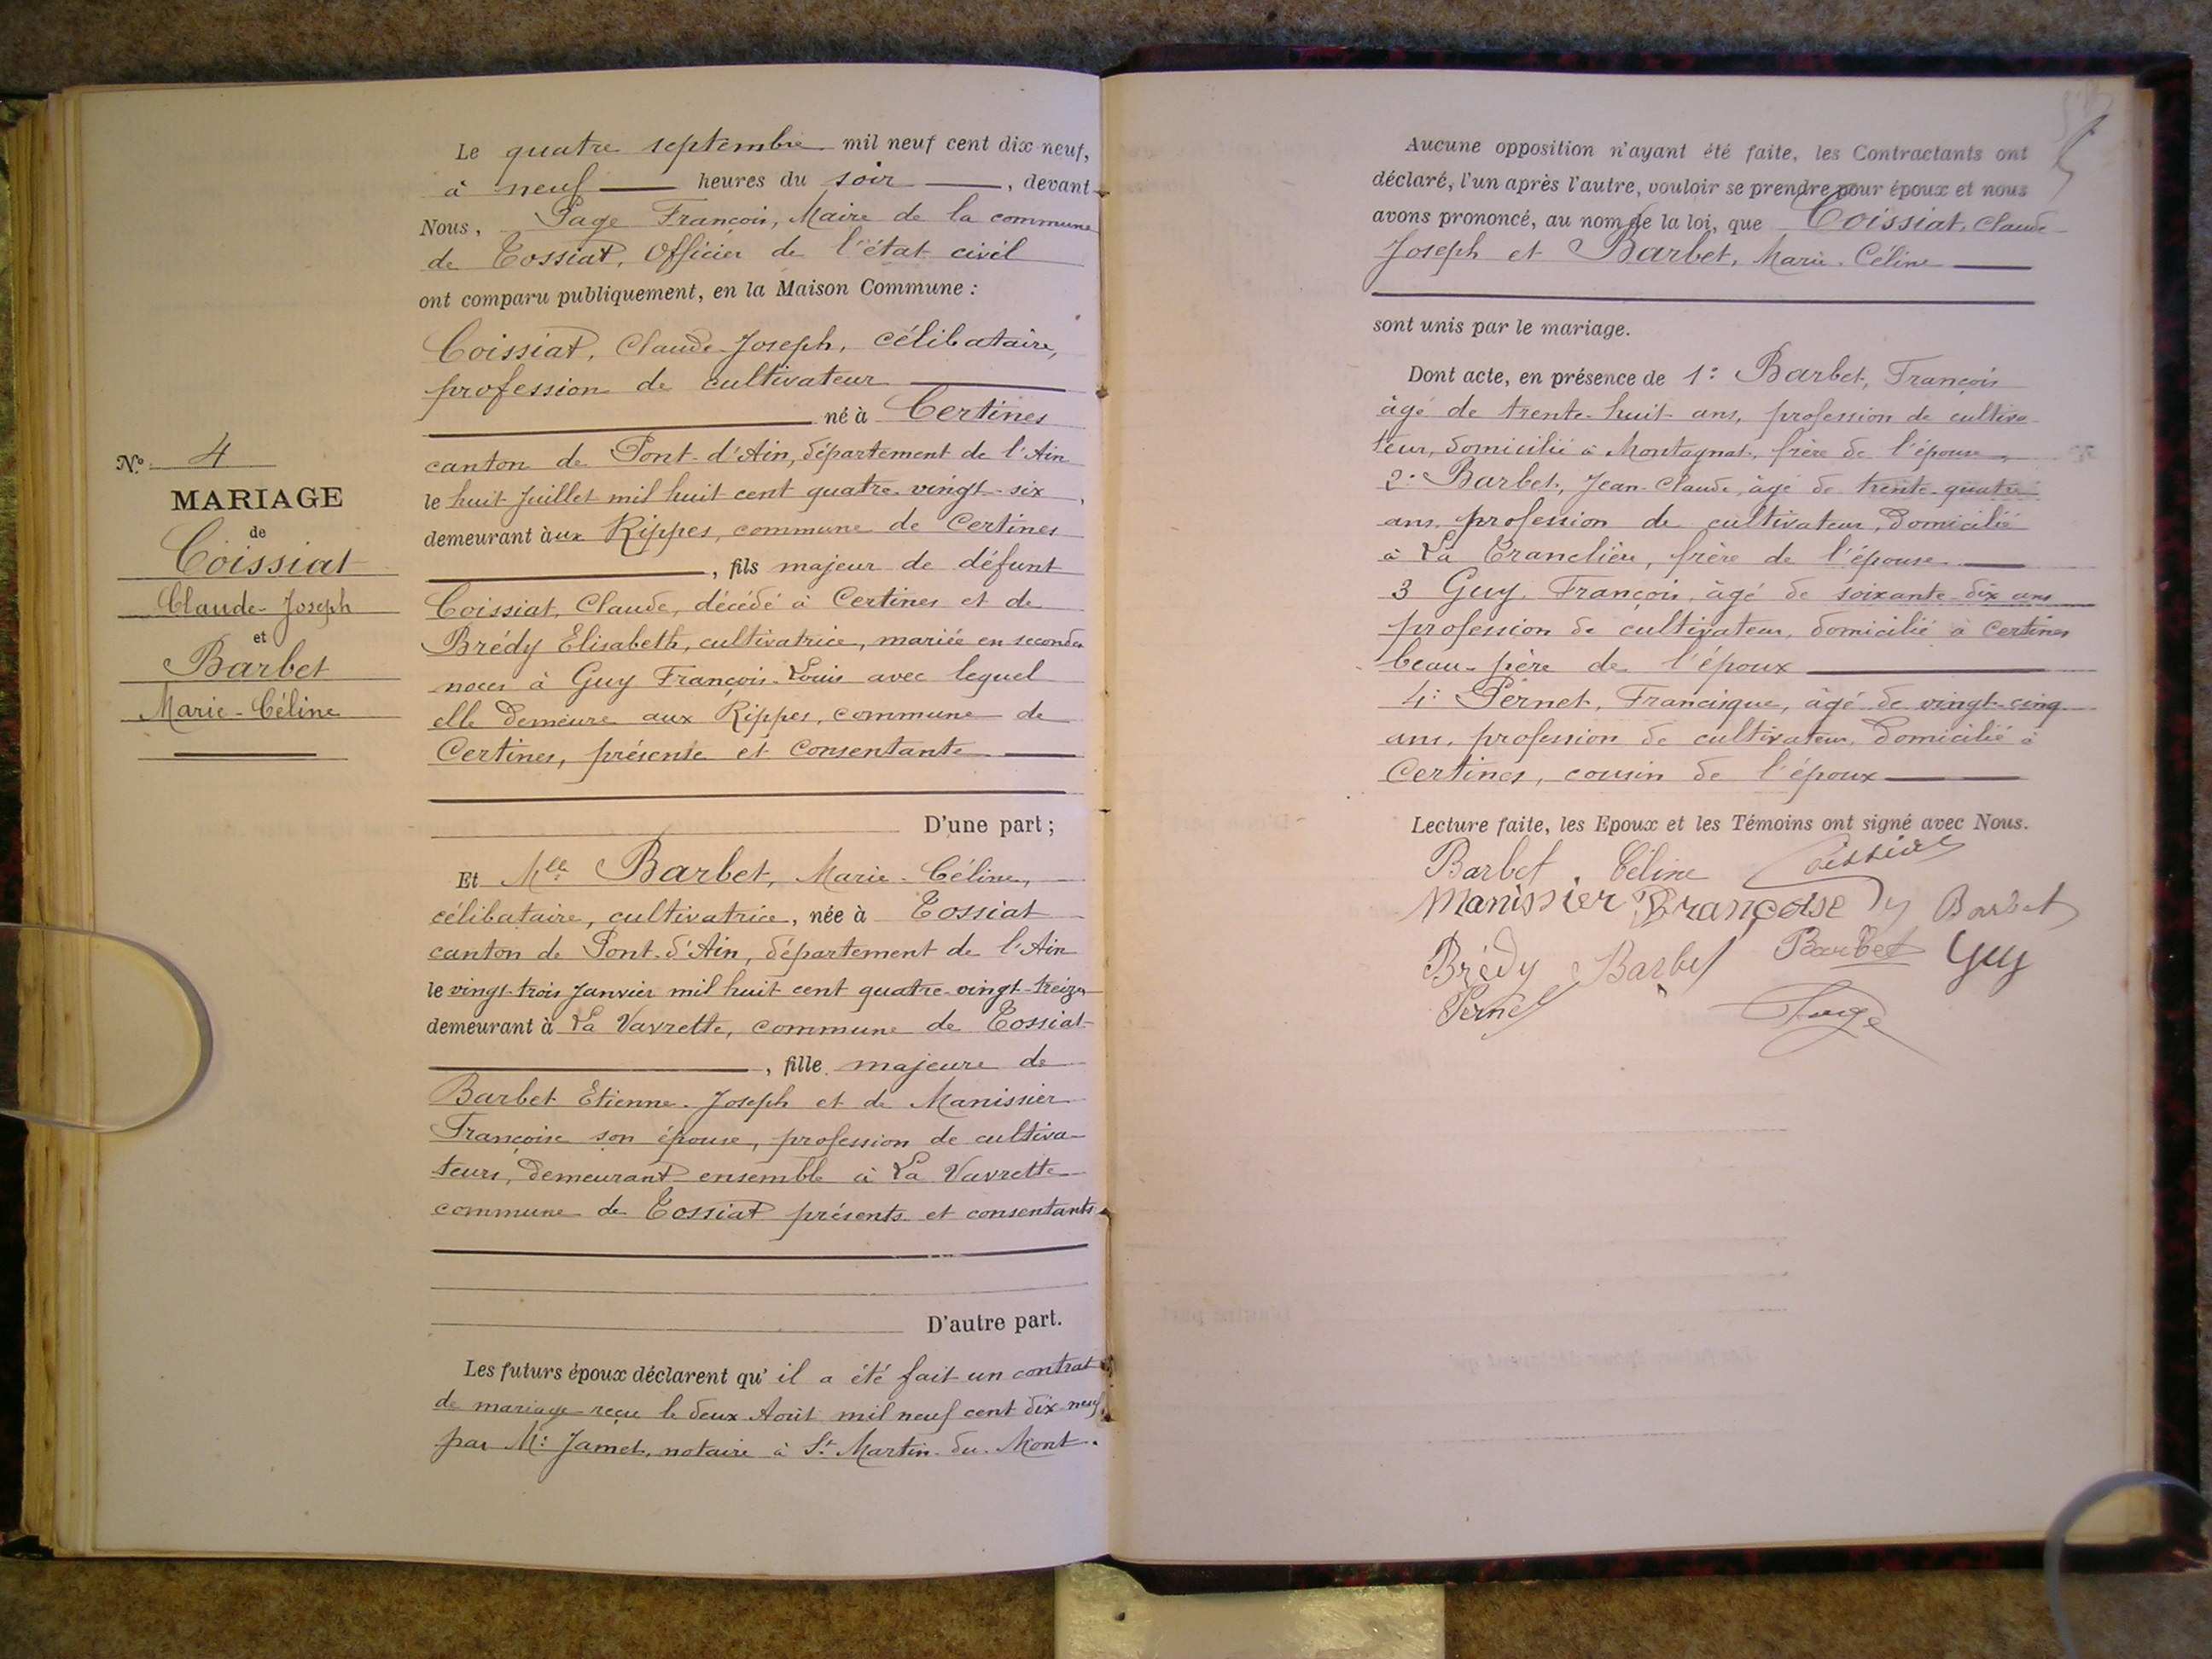 N° 4
MARIAGE
de
Coissiat
Claude-Joseph
et
Barbet
Marie-Céline
Le quatre septembre mil neuf cent dix-neuf,
à neuf heures du soir, devant
Nous, Page François, Maire de la commune
de Tossiat, Officier de l'état civil
ont comparu publiquement, en la Maison Commune :
Coissiat, Claude-Joseph, célibataire,
profession de cultivateur
né à Certines
canton de Pont-d'Ain, département de l'Ain
le huit Juillet mil huit cent quatre-vingt-six,
demeurant aux Rippes, commune de Certines
, fils majeur de défunt
Coissiat, Claude, décédé à Certines et de
Brédy Elisabeth, cultivatrice, mariée en secondes
noces à Guy François-Louis avec lequel
elle demeure aux Rippes, commune de
Certines, présente et consentante
D'une part ;
Et Mlle Barbet, Marie-Céline,
célibataire, cultivatrice, née à Tossiat
canton de Pont-d'Ain, département de l'Ain
le vingt-trois Janvier mil huit cent quatre-vingt-treize
demeurant à La Vavrette, commune de Tossiat
, fille majeure de
Barbet Etienne-Joseph et de Manissier
Françoise son épouse, profession de cultiva-
teurs, demeurant ensemble à La Vavrette
commune de Tossiat présents et consentants
D'autre part.
Les futurs époux déclarent qu'il a été fait un contrat
de mariage reçu le deux Août mil neuf cent dix-neuf
par Me Jamet, notaire à St Martin-du-Mont.
Aucune opposition n'ayant été faite, les Contractants ont
déclaré, l'un après l'autre, vouloir se prendre pour époux et nous
avons prononcé, au nom de la loi, que Coissiat, Claude
Joseph et Barbet, Marie-Céline
sont unis par le mariage.
Dont acte, en présence de 1° Barbet, François
âgé de trente-huit ans, profession de cultiva-
teur, domicilié à Montagnat, frère de l'épouse,
2° Barbet, Jean-Claude, âgé de trente-quatre
ans, profession de cultivateur, domicilié
à La Tranclière, frère de l'épouse
3 Guy, François, âgé de soixante-dix ans
profession de cultivateur, domicilié à Certines
beau-père de l'époux
4° Pernet, Francisque, âgé de vingt-cinq
ans, profession de cultivateur, domicilié à
Certines, cousin de l'époux
Lecture faite, les Epoux et les Témoins ont signé avec Nous.
Barbet Céline Coissiat
Manissier Françoise Barbet
Brédy Barbet Barbet Guy
Pernet Page